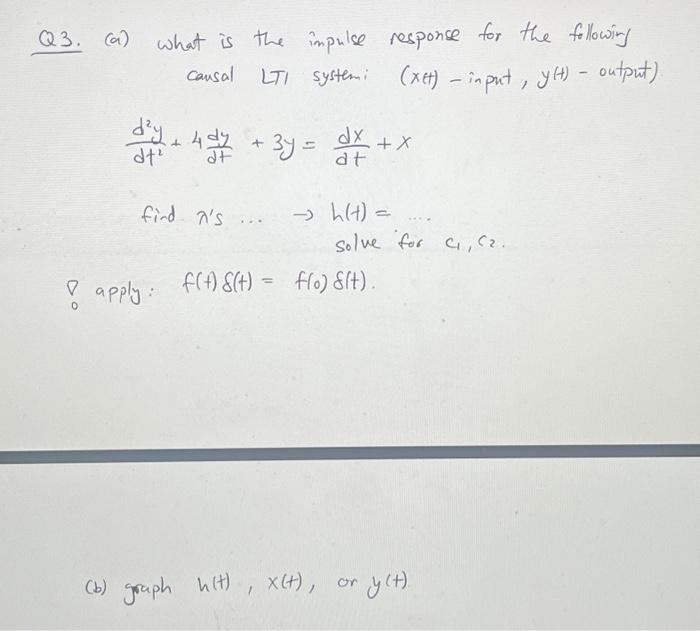 Q3. (a) what is the impulse response for the following
causal LTI system: (x(t) - input, y(t) - output)
d²y/dt² + 4 dy/dt + 3y = dx/dt + x
find λ's ... → h(t) = ....
solve for c₁, c₂.
! apply: f(t) δ(t) = f(0) δ(t).
(b) graph h(t), x(t), or y(t)